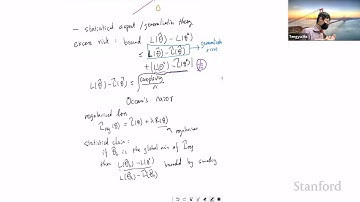 - statistical aspect / generalization theory
excess risk : bound L(θ̂) - L(θ*)
≤ L(θ̂) - L̂(θ̂) → generalization error
+ |L(θ*) - L̂(θ*)|
L(θ̂) - L̂(θ̂) ≤ √complexity / n
Occam's razor
regularized loss
L̂reg(θ) = L̂(θ) + λ R(θ)
regularizer
statistical claim :
if θ̂λ is the global min of L̂reg
then L(θ̂λ) - L(θ*) bounded by
L(θ̂λ) - L̂(θ̂λ)
Tengyu Ma
Stanford